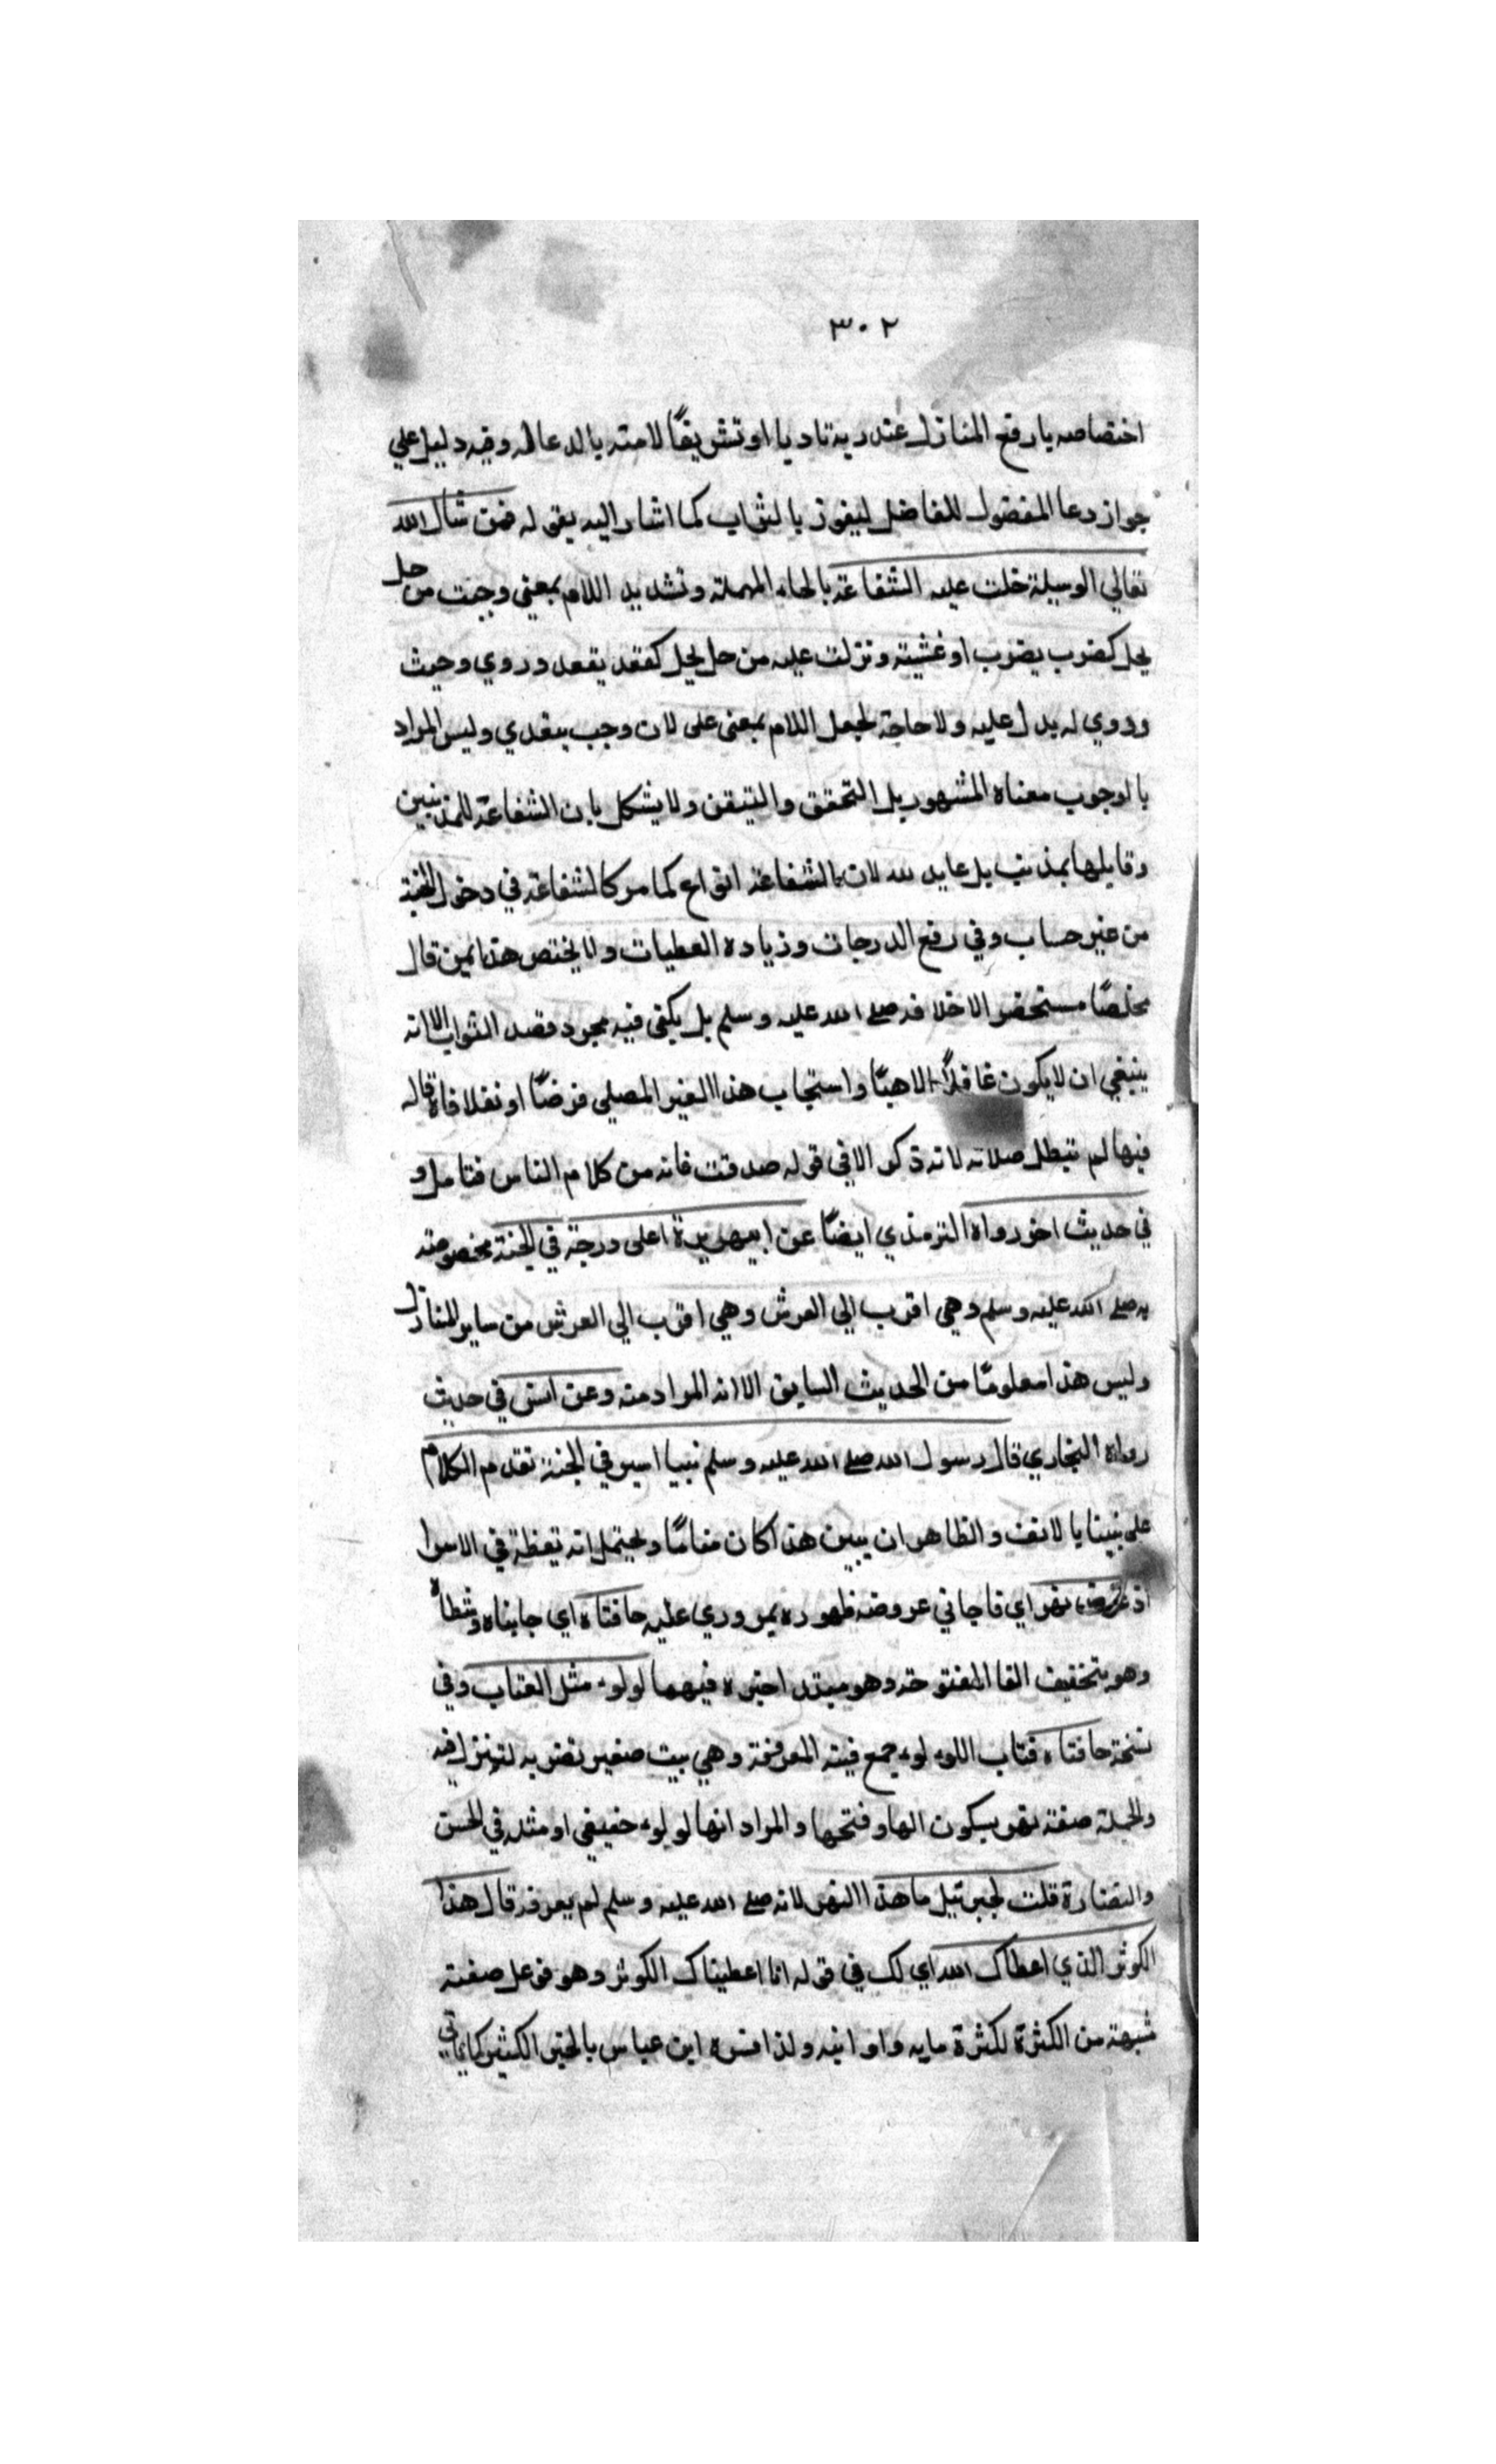 ٣٠٢
اختصاصه بارفع المنازل عند ربه تاديا او تشريفًا لامته بالدعا له وفيه دليل علي
جواز دعا المفضول للفاضل ليفوز بالثواب كما اشار اليه بقوله فمن سال الله
تعالي الوسيلة حلت عليه الشفاعة بالحاء المهملة وتشديد اللام بمعني وجبت من حل
يحل كضرب يضرب او غشيته ونزلت عليه من حل يحل كقعد يقعد وروي وجبت
وروي له بدل عليه ولا حاجة لجعل اللام بمعني علي لان وجب يتعدي وليس المراد
بالوجوب معناه المشهور بل التحقق والتيقن ولا يشكل بان الشفاعة للمذنبين
وقايلها بمذنب بل عابد لله لان الشفاعة انواع كما مر كالشفاعة في دخول الجنة
من غير حساب وفي رفع الدرجات وزياده العطيات ولا يختص هذا بمن قال
مخلصًا مستحضر الاخلاقه صلى الله عليه وسلم بل يكفى فيه مجرد قصد الثواب الا انه
ينبغي ان لا يكون غافلاً لاهيًا واستجاب هذا الغير المصلي فرضًا او نفلا فاذا قاله
فيها لم تبطل صلاته لانه ذكر الا في قوله صدقت فانه من كلام الناس فتامل و
في حديث اخر رواه الترمذي ايضًا عن ابي هريرة اعلى درجة في الجنة مخصوصة
به صلى الله عليه وسلم وهي اقرب الي العرش وهي اقرب الي العرش من ساير المنازل
وليس هذا معلومًا من الحديث السابق الا انه المراد منه وعن انس في حديث
رواه البخاري قال رسول الله صلى الله عليه وسلم بينا اسير في الجنة تقدم الكلام
على بينا بالالف والظاهر ان يبين هذا كان منامًا ويحتمل انه يقظة في الاسرا
اذ عرض نهر اي فاجاني عروضه ظهوره بمروري عليه حافتاه اي جانباه وشطاه
وهو بتخفيف الفا المفتوحة وهو مبتدا خبره فيهما لولوء مثل القباب وفي
نسخة حافتاه قباب اللولوء جمع قبة المعرفة وهي بيت صغير تضرب لتنزل فيه
والجملة صفة نهر بسكون الها وفتحها والمراد انها لولوء حقيقي او مثله في الحسن
والنضارة قلت لجبرئيل ما هذا النهر لانه صلى الله عليه وسلم لم يعرفه قال هذا
الكوثر الذي اعطاك الله اي لك في قوله انا اعطيناك الكوثر وهو فوعل صفة
شبهة من الكثرة لكثرة مايه واوانيه ولذا فسره ابن عباس بالخير الكثير كما ياتي